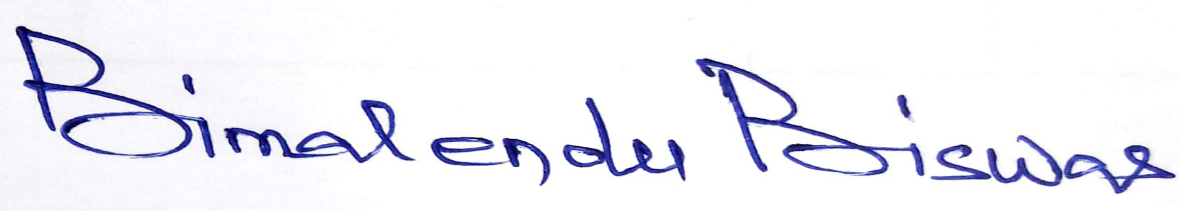 Bimalendu Biswas